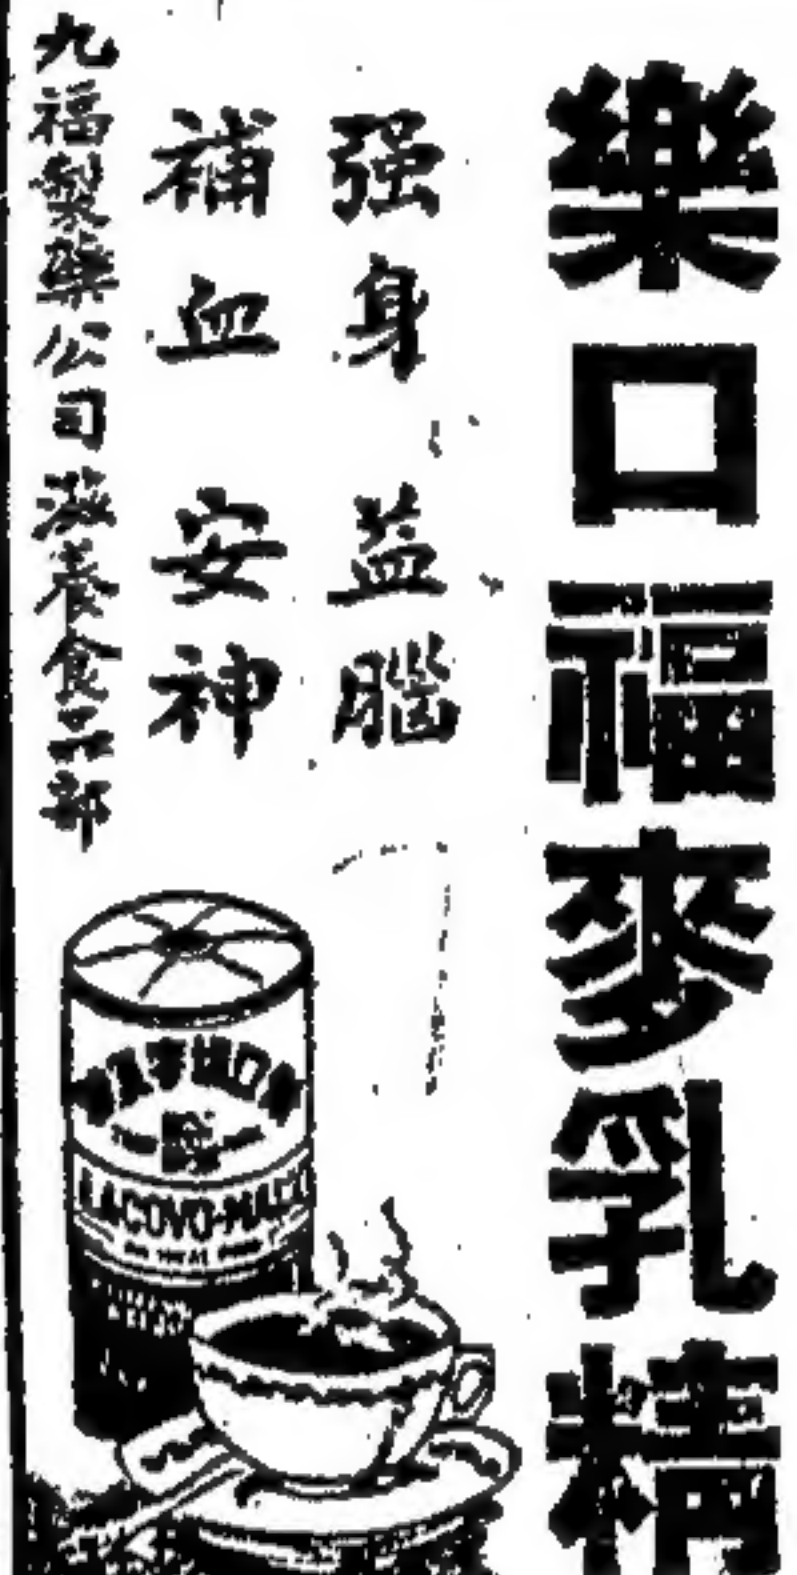 樂口福麥乳精
强身 益腦
補血 安神
九福製藥公司滋養食品部
LACOVO-MALT